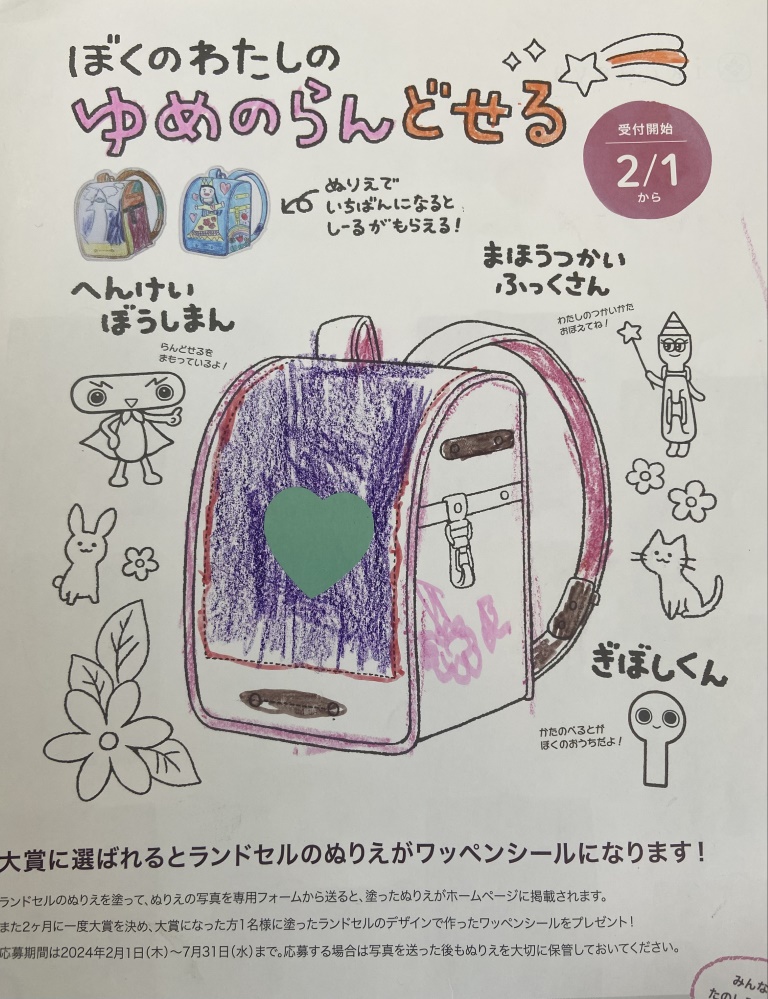 ぼくのわたしの
ゆめのらんどせる
受付開始
2/1
から
ぬりえで
いちばんになると
しーるがもらえる!
へんけい
ぼうしまん
らんどせるを
まもっているよ!
まほうつかい
ふっくさん
わたしのつかいかた
おぼえてね!
ぎぼしくん
かたのべるとが
ぼくのおうちだよ!
大賞に選ばれるとランドセルのぬりえがワッペンシールになります!
ランドセルのぬりえを塗って、ぬりえの写真を専用フォームから送ると、塗ったぬりえがホームページに掲載されます。
また2ヶ月に一度大賞を決め、大賞になった方1名様に塗ったランドセルのデザインで作ったワッペンシールをプレゼント!
応募期間は2024年2月1日(木)〜7月31日(水)まで。応募する場合は写真を送った後もぬりえを大切に保管しておいてください。
みんな